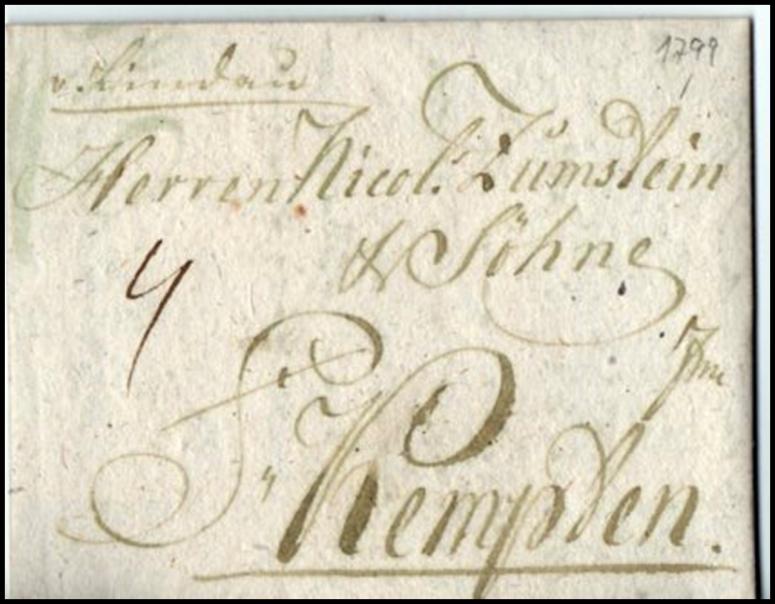 1799
v. Lindau
Herren Nicol. Zumstein
& Söhne
4
Kempten.